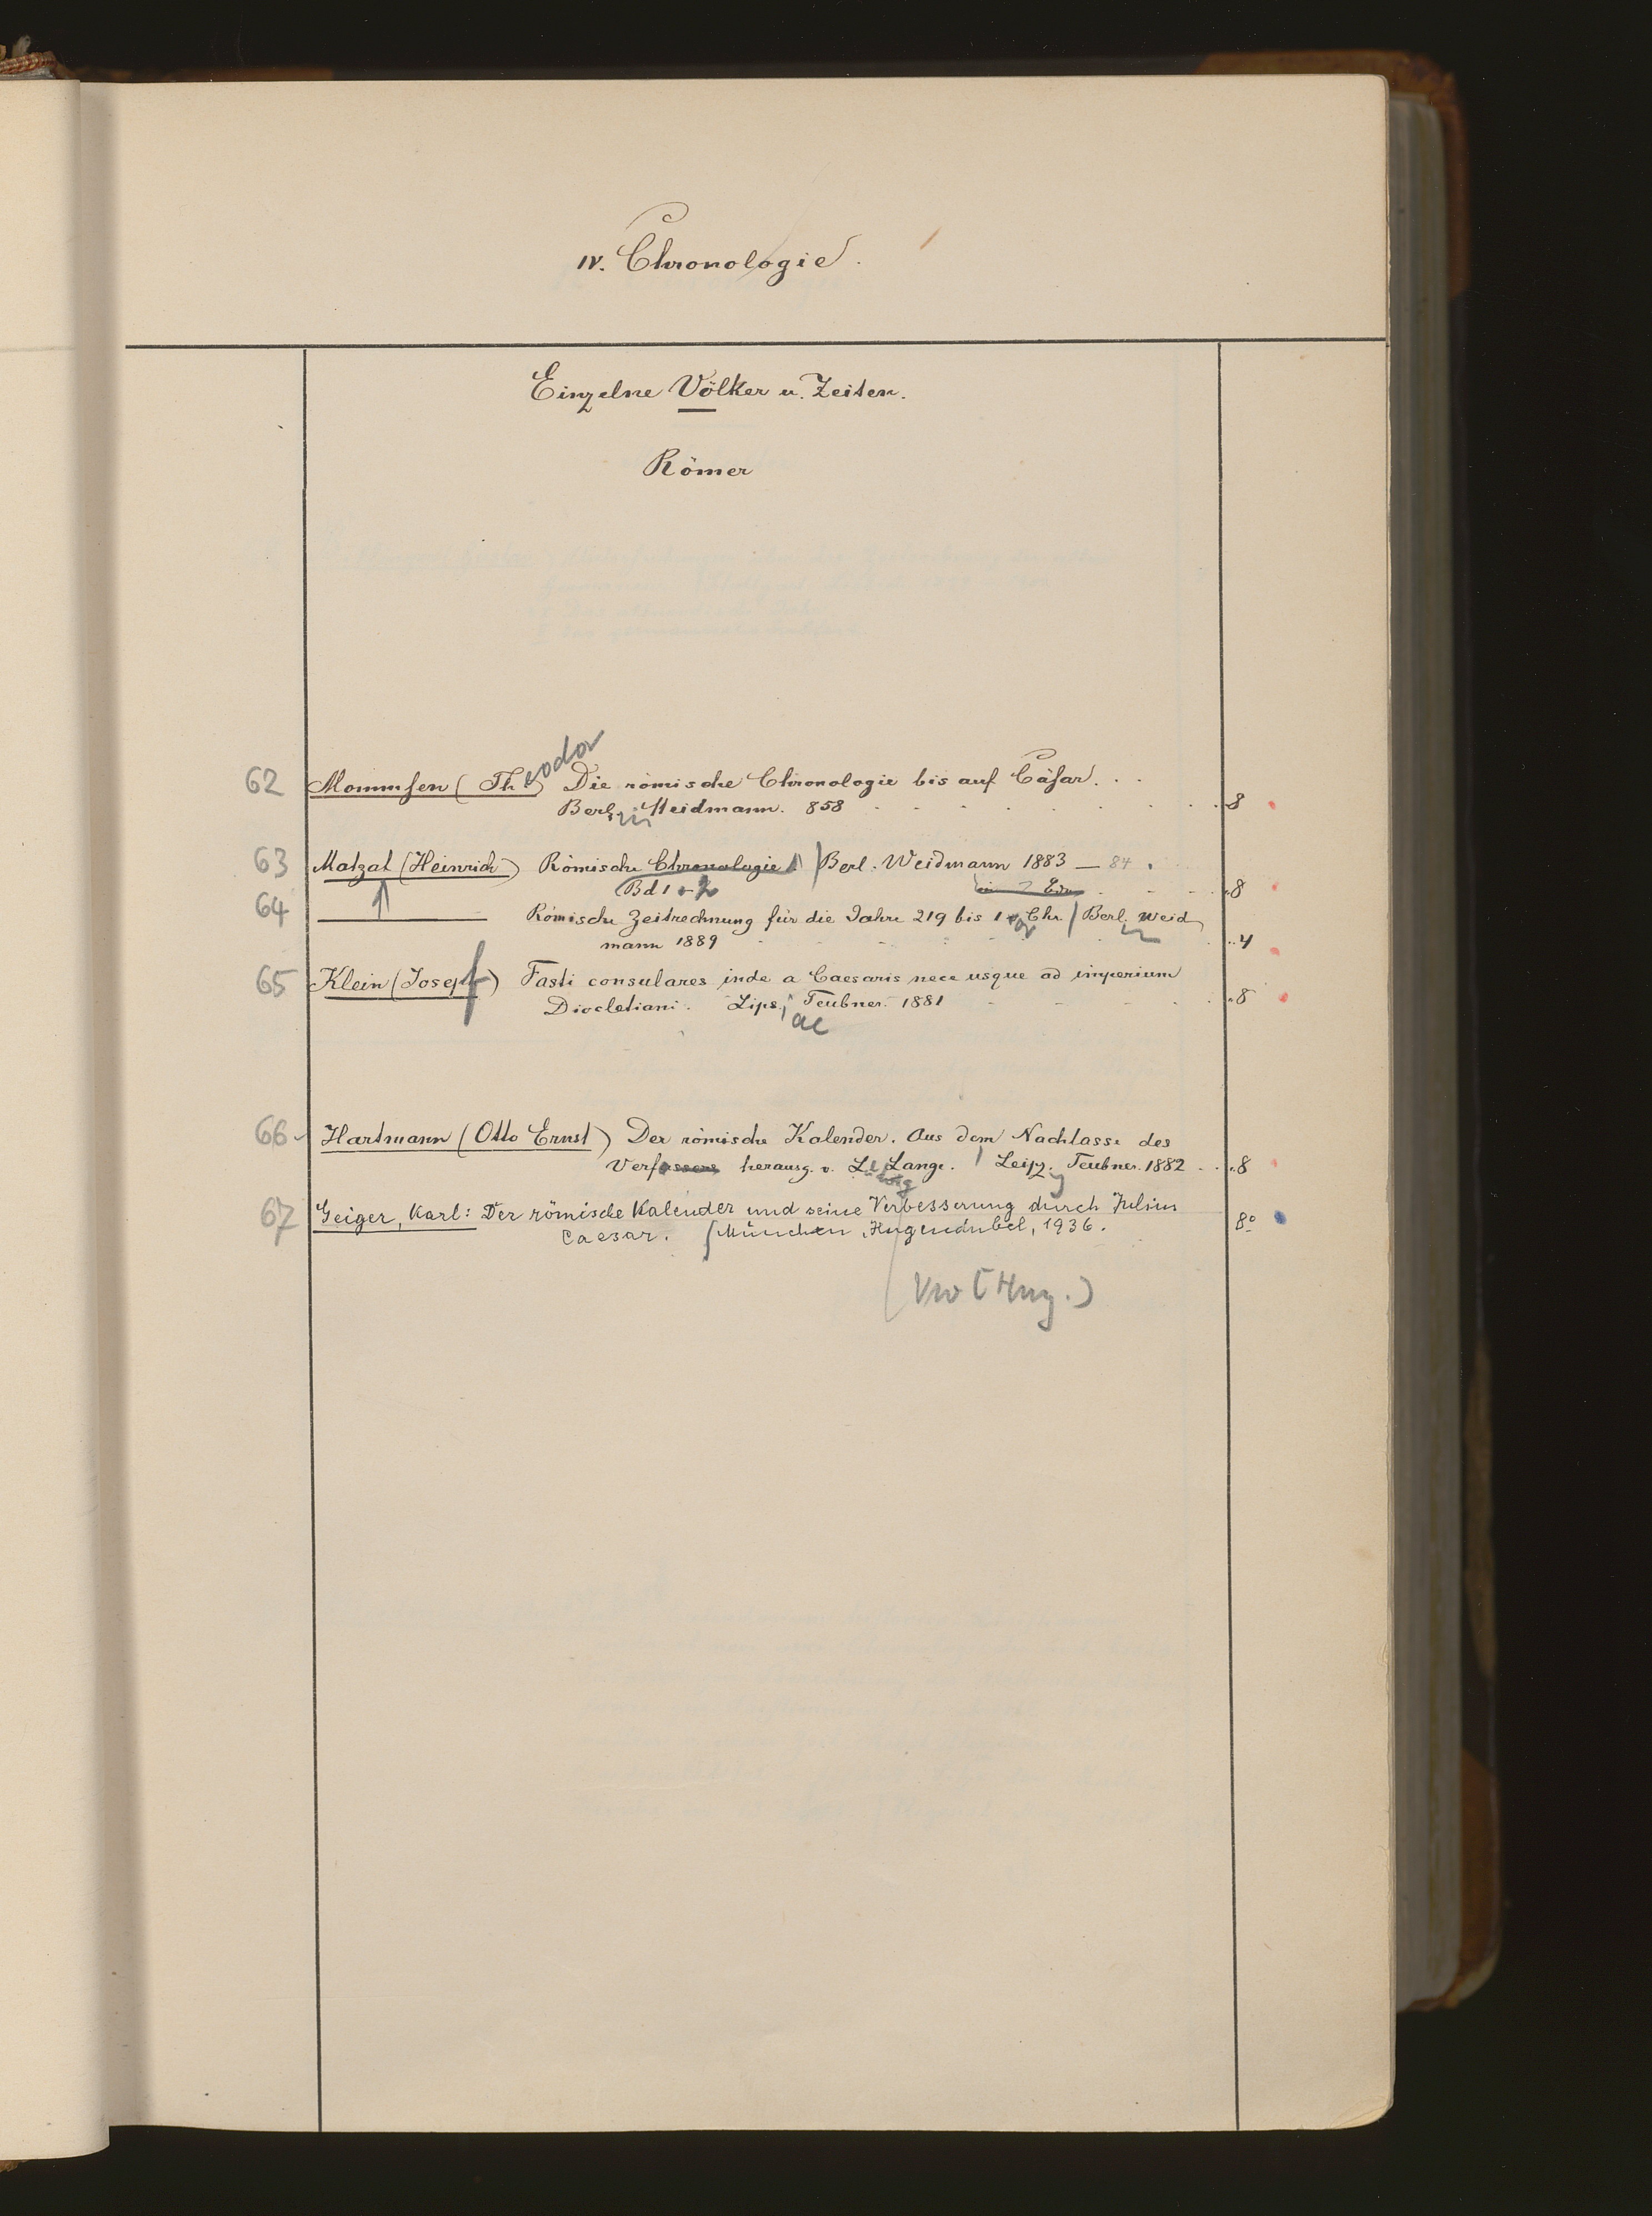 IV. Chronologie.
Einzelne Völker u. Zeiten.
Römer
62 Mommsen (Theodor) Die römische Chronologie bis auf Cäsar. . .
Berlin Weidmann. 858 8
63 Matzat (Heinrich) Römische Chronologie / Berl. Weidmann 1883 — 84.
Bd 1 + 2 in 2 Bdn 8
64 ——— Römische Zeitrechnung für die Jahre 219 bis 1 v Chr. / Berl. Weid
mann 1889 4
65 Klein (Josef) Fasti consulares inde a Caesaris nece usque ad imperium
Diocletiani. Lipsiae Teubner. 1881 8
66 Hartmann (Otto Ernst) Der römische Kalender. Aus dem Nachlasse des
Verfassers herausg. v. Ludwig Lange. / Leipz. Teubner. 1882 8
67 Geiger, Karl: Der römische Kalender und seine Verbesserung durch Julius
Caesar. / München, Hugendubel, 1936. 8°
(Hug.)